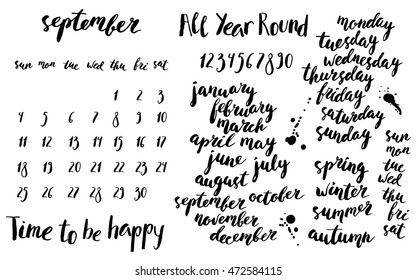 september
sun mon tue wed thu fri sat
1 2 3
4 5 6 7 8 9 10
11 12 13 14 15 16 17
18 19 20 21 22 23 24
25 26 27 28 29 30
Time to be happy
All Year Round
1234567890
january
february
march
april may
june july
august
september october
november
december
monday
tuesday
wednesday
thursday
friday
saturday
sunday
spring
winter
summer
autumn
sun
mon
tue
wed
thu
fri
sat
shutterstock.com · 472584115